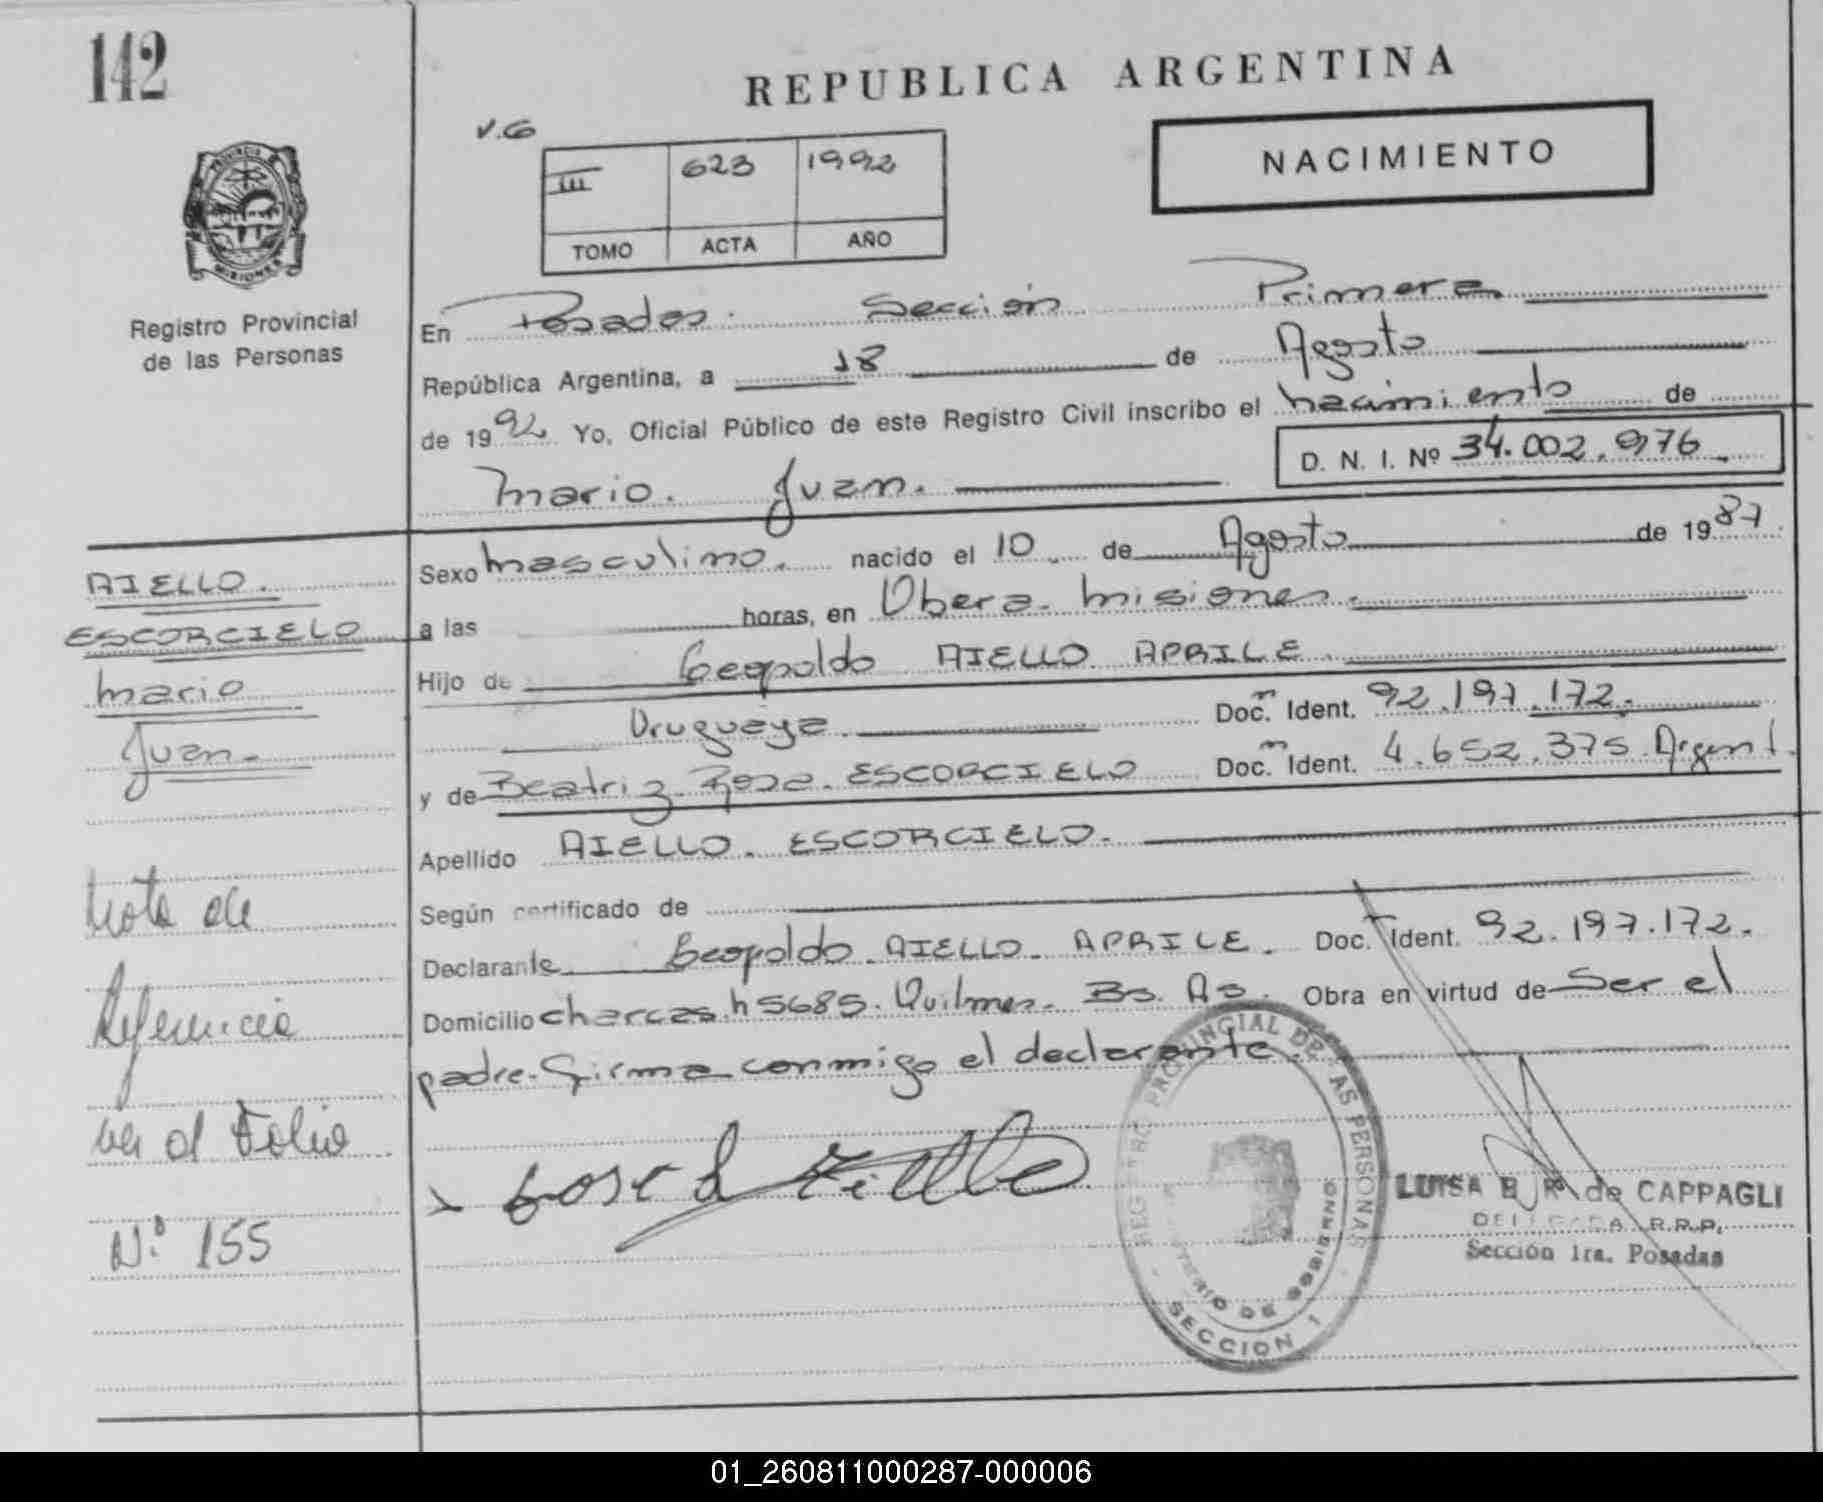 142
REPUBLICA ARGENTINA
V.G
III 623 1992
TOMO ACTA AÑO
NACIMIENTO
PROVINCIA DE
MISIONES
Registro Provincial
de las Personas
En Posadas. Sección Primera
República Argentina, a 18 de Agosto
de 1992 Yo, Oficial Público de este Registro Civil inscribo el nacimiento de
D. N. I. Nº 34.002.976
Mario. Juan.
Sexo masculino. nacido el 10 de Agosto de 1987.
a las horas, en Obera. Misiones.
Hijo de Leopoldo AIELLO APRILE.
Uruguaya Doc. Ident. 92.197.172.
y de Beatriz Rosa. ESCORCIELO Doc. Ident. 4.652.375. Argent.
Apellido AIELLO. ESCORCIELO.
Según certificado de
Declarante Leopoldo AIELLO APRILE. Doc. Ident. 92.197.172.
Domicilio charcas n 5685. Quilmes. Bs. As. Obra en virtud de Ser el
padre. Firma conmigo el declarante.
AIELLO.
ESCORCIELO
Mario
Juan.
Nota de
Referencia
ver al Folio
Nº 155
REGISTRO PROVINCIAL DE LAS PERSONAS
MINISTERIO DE GOBIERNO
SECCION 1
LUISA B. R. de CAPPAGLI
DELEGADA R.R.P.
Sección 1ra. Posadas
01_260811000287-000006